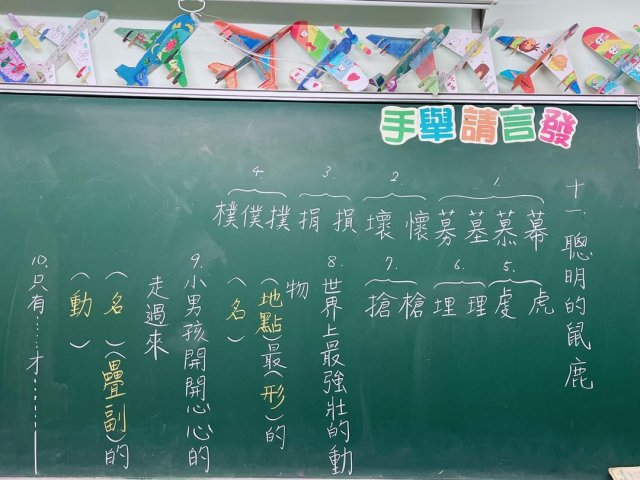 發言請舉手
十一、聰明的鼠鹿
1. 幕慕墓募
2. 懷壞
3. 損捐
4. 撲僕樸
5. 虎虔
6. 理埋
7. 槍搶
8. 世界上最強壯的動
物
(地點)最(形)的
(名)
9. 小男孩開開心心的
走過來
(名)(疊副)的
(動)
10. 只有……才……